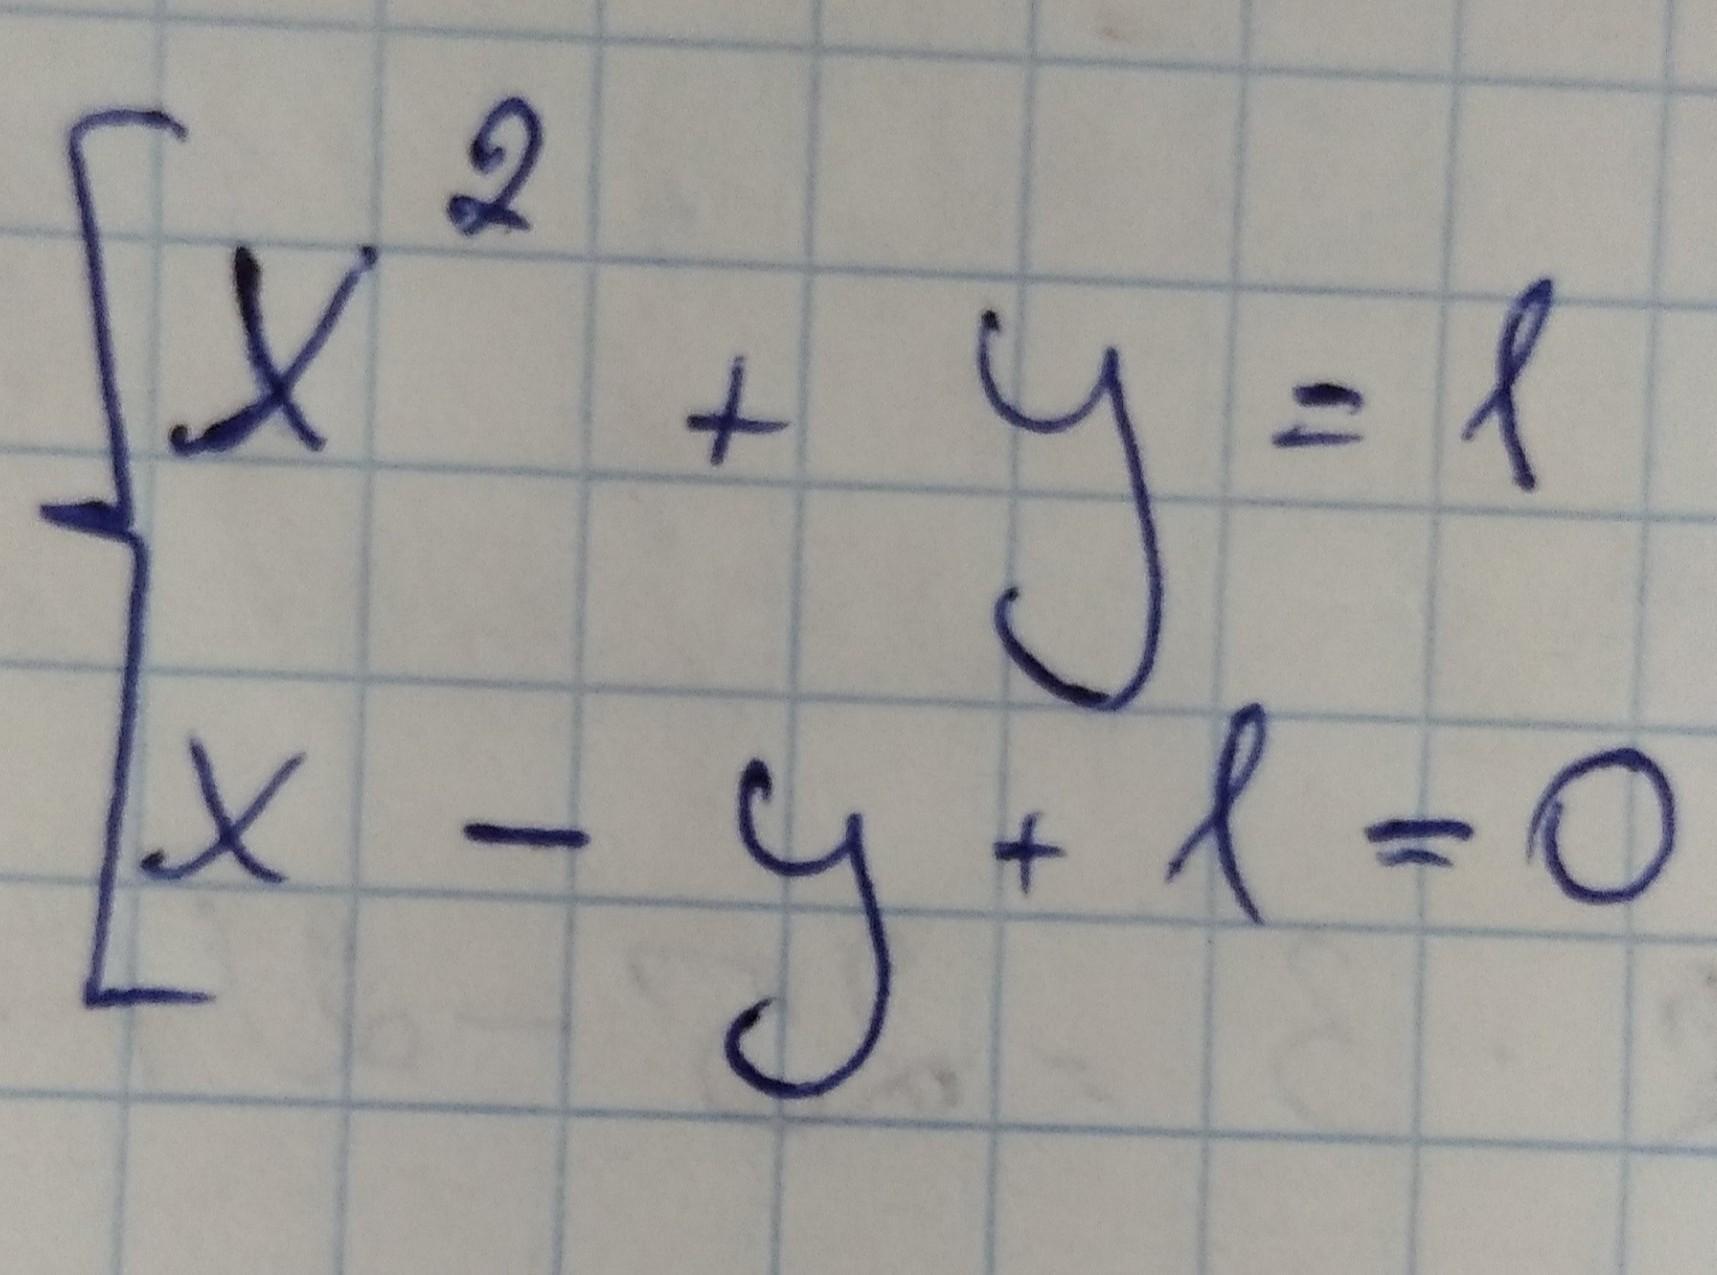 x² + y = 1
x - y + 1 = 0